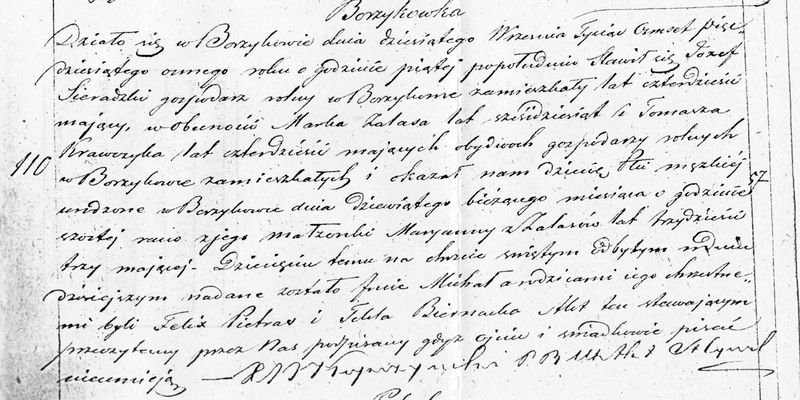 Borzykowka
Działo się w Borzykowie dnia dziesiątego Września Tysiąc Ośmset pięć-
dziesiątego osmego roku o godzinie piątej popołudniu Stawił się Józef
Sieradzki gospodarz rolny w Borzykowie zamieszkały lat czterdzieści
mający, w obecności Marka Zalasa lat sześćdziesiąt i Tomasza
110 Krawczyka lat czterdzieści mających obydwoch gospodarzy rolnych
w Borzykowie zamieszkałych i okazał nam dziecię płci męzkiej 57
urodzone w Borzykowie dnia dziewiątego bieżącego miesiąca o godzinie
szóstej rano z jego małżonki Maryanny z Zalasów lat trzydzieści
trzy mającej. Dziecięciu temu na chrzcie świętym odbytym w dniu
dzisiejszym nadane zostało Imie Michał a rodzicami jego chrzestne-
mi byli Felix Pietras i Tekla Biernacka Akt ten stawającym
przeczytany przez Nas podpisany gdyż ojciec i świadkowie pisać
nieumieją